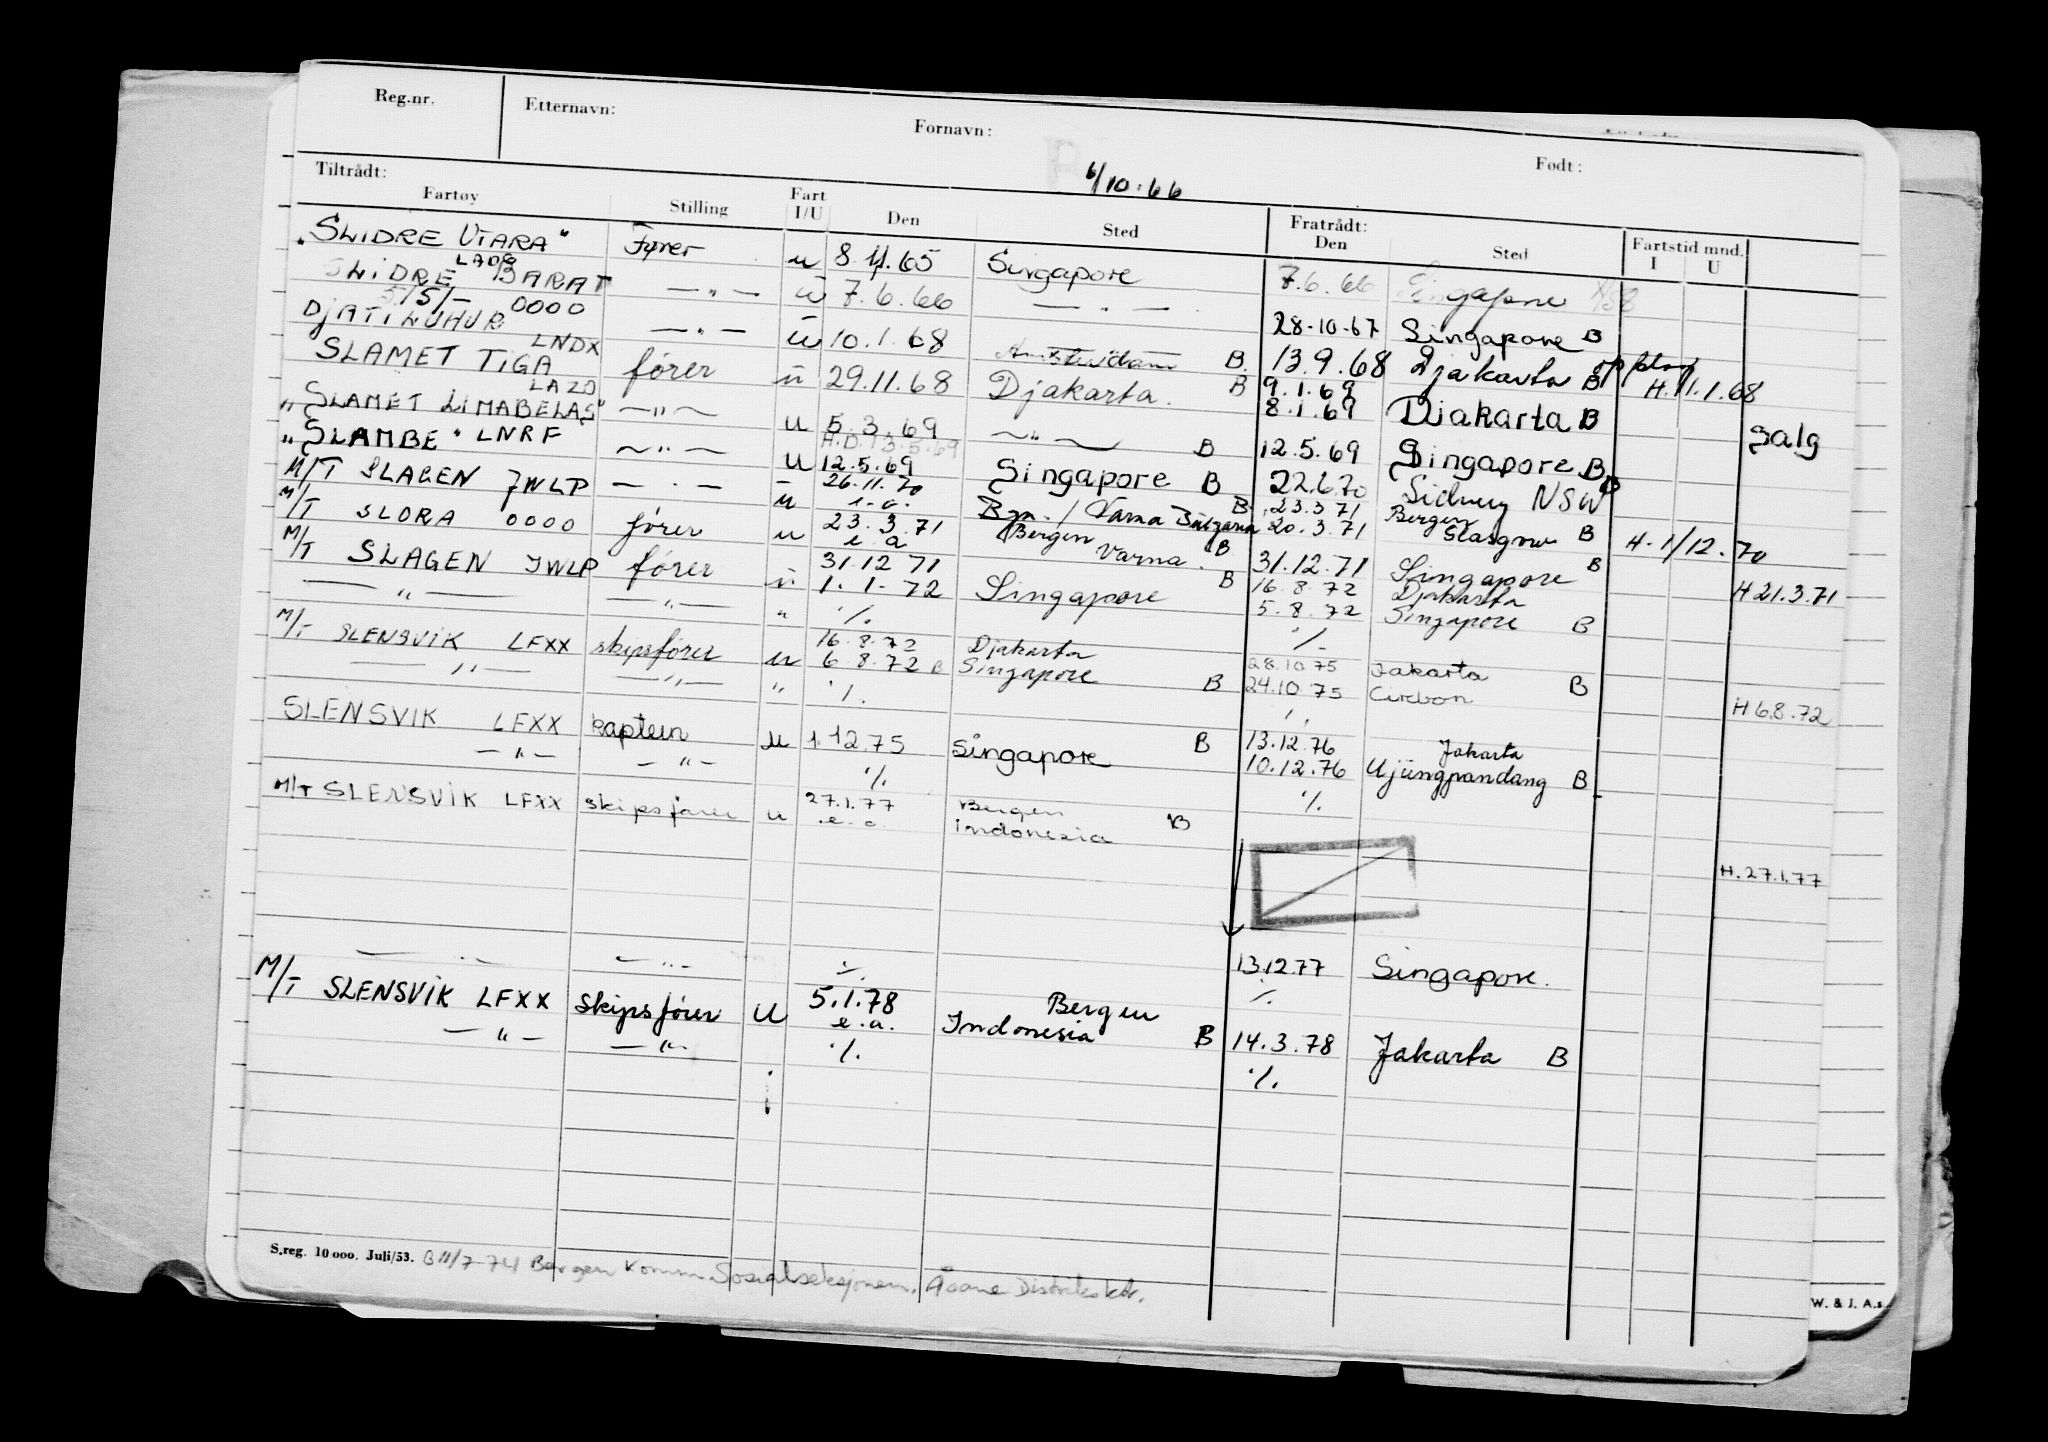 Reg.nr. Etternavn: Fornavn: Født:
6/10.66
Tiltrådt: Fratrådt: Fartstid mnd.
Fartøy Stilling Fart I/U Den Sted Den Sted I U
"SLIDRE UTARA" Fører u 8.11.65 Singapore 7.6.66 Singapore
LADG
SLIDRE BARAT — " — u 7.6.66 — " — 28-10-67 Singapore B
S/S/- 0000
DJATILUHUR — " — u 10.1.68 Amsterdam B. 13.9.68 Djakarta B H.11.1.68
LNDX
SLAMET TIGA fører u 29.11.68 Djakarta. B 9.1.69
8.1.69 Djakarta B
LAZO
"SLAMET LIMABELAS" — " — u 5.3.69 — " — B 12.5.69 Singapore B Salg
H.D. 13.5.69
"SLAMBE" LNRF — " — u 12.5.69 Singapore B 22.6.70 Sidney NSW B
M/T SLAGEN JWLP — " — u 26.11.70 Bgn. / Varna B. 23.3.71 Bergen
20.3.71 Glasgow B H.1/12.70
M/T SLORA 0000 fører u 23.3.71 Bergen
e.a Varna. B 31.12.71 Singapore B
M/T SLAGEN JWLP fører u 31.12 71
1.1-72 Singapore B 16.8.72 Djakarta H 21.3.71
5.8.72 Singapore B
— " — — " — " ./. ./.
M/T SLENSVIK LFXX skipsfører u 16.8.72 Djakarta 28.10.75 Jakarta
6.8.72 B Singapore B 24.10.75 Cirebon B
— " — — " — " ./. ./. H 6.8.72
SLENSVIK LFXX kaptein u 1.12.75 Singapore B 13.12.76 Jakarta
10.12.76 Ujungpandang B
— " — — " — ./. ./.
M/T SLENSVIK LFXX skipsfører u 27.1.77 Bergen
e.a. Indonesia B
H.27.1.77
— " — — " — ./. 13.12.77 Singapore.
./.
M/T SLENSVIK LFXX skipsfører U 5.1.78 Bergen
e.a. Indonesia B 14.3.78 Jakarta B
— " — — " — ./. ./.
S.reg. 10 000. Juli/53. B 11/7-74 Bergen Komm. Sosialseksjonen, Åsane Distriktsktr.
W. & J. A.s